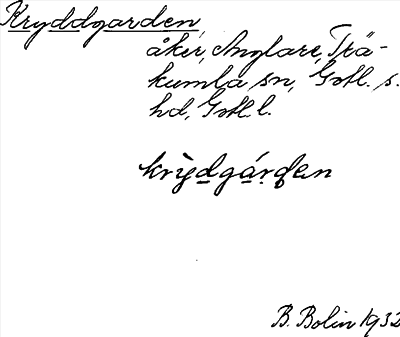 Kryddgarden,
åker, Anglare, Trä-
kumla sn, Gotl. s.
hd, Gotl. l.
krỳdgárden
B. Bolin 1932